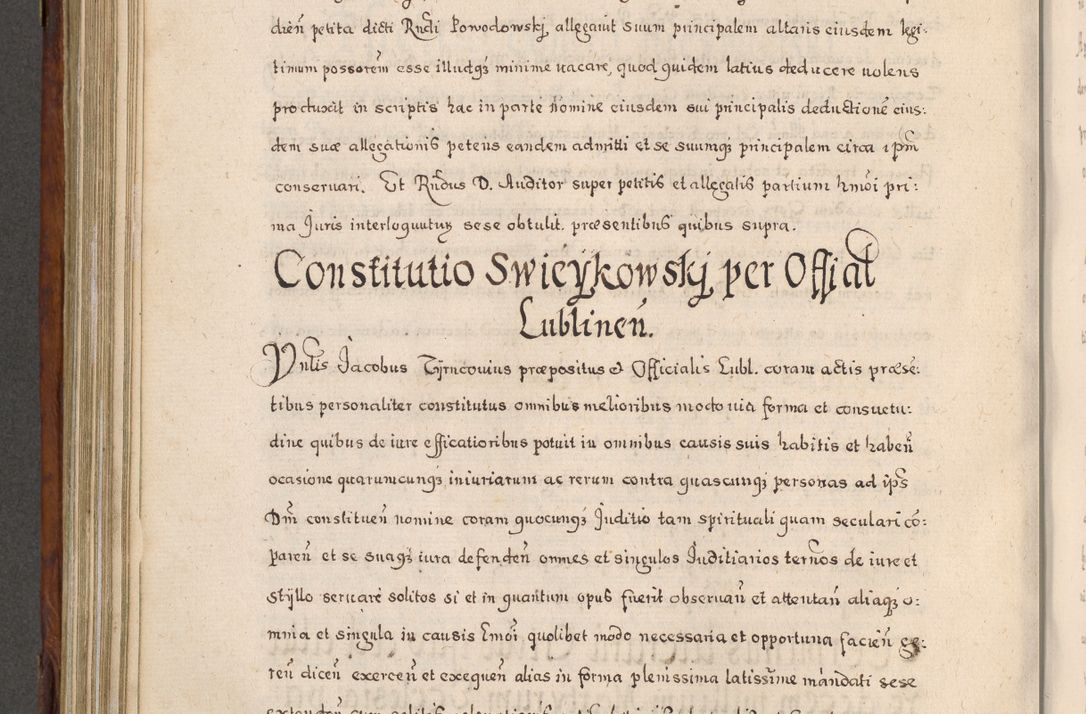 dień petita dicti Rndi Powodowskj, allegavit suum principalem altaris eiusdem legi:
timum possorem esse illudqȝ minime vacare, quod quidem latius deducere volens
produxit in scriptis hac in parte nomine eiusdem sui principalis deductionē eius:
dem suæ allegationis petens eandem admitti et se suumqȝ principalem circa ipm
conseruari. Et Rndus D. Auditor super petitis et allegatis partium hmōi pri:
ma Juris interloquutuȝ sese obtulit. præsentibus quibus supra.
Constitutio Swieykowskj per Officiał
Lublineń.
Vnlis Jacobus Tyrncovius præpositus et Officialis Lubl. coram actis præsē:
tibus personaliter constitutus omnibus melioribus modo via forma et consuetu:
dine quibus de iure efficatioribus potuit in omnibus causis suis habitis et habeń
ocasione quarumcunqȝ iniuriarum ac rerum contra quascunqȝ personas ad ips
Dm̄ constitueń nomine coram quocunqȝ Juditio tam spirituali quam seculari cō:
pareń et se suaqȝ iura defendeń omnes et singulos Juditiarios ternos de iure et
styllo seruare solitos si et in quantum opus fuerit obseruań et attentań aliaqȝ o:
mnia et singula in causis hmōi quolibet modo necessaria et opportuna facień ge:
reń diceń exerceń et exequeń alias in forma plenissima latissime mandati sese